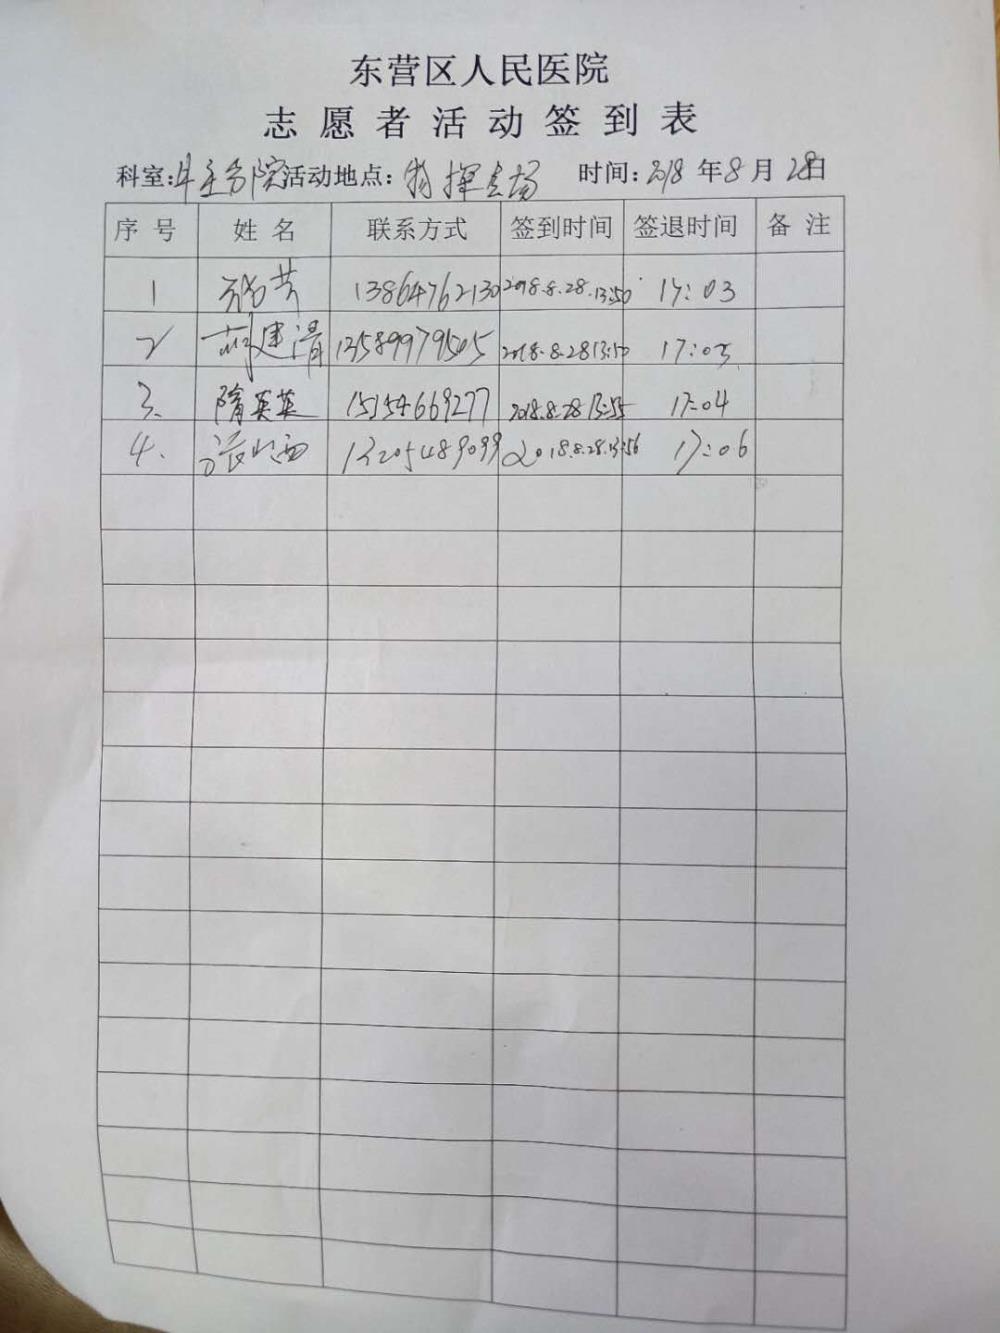 东营区人民医院
志愿者活动签到表
科室:牛庄分院 活动地点: 指挥 场 时间:2018年8月28日
序号 姓名 联系方式 签到时间 签退时间 备注
1 芳 13864762130 2018.8.28.13:50 17:03
2 建清 13589979505 2018.8.28 13:50 17:03
3. 隋英英 15154669277 2018.8.28 13:55 17:04
4. 张 西 13205489099 2018.8.28.13:56 17:06